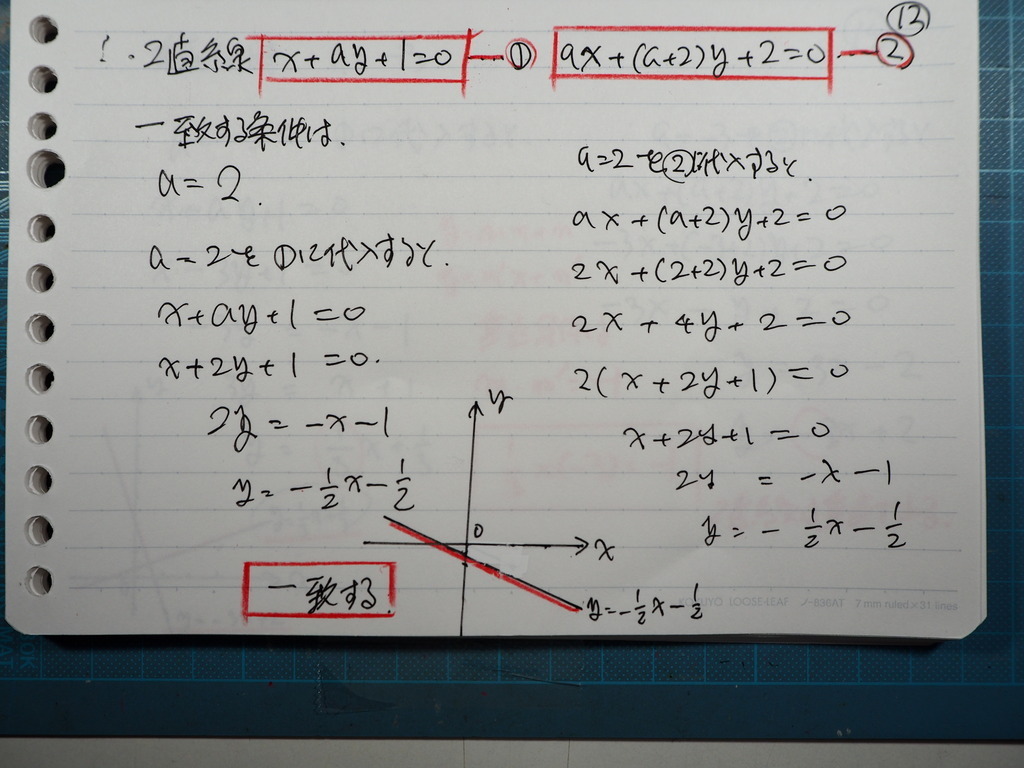 ⑬
1. 2直線 x+ay+1=0 ー① ax+(a+2)y+2=0 ー②
一致する条件は、
a=2.
a=2を①に代入すると.
x+ay+1=0
x+2y+1=0.
2y=-x-1
y=-1/2x-1/2
一致する.
a=2を②に代入すると.
ax+(a+2)y+2=0
2x+(2+2)y+2=0
2x+4y+2=0
2(x+2y+1)=0
x+2y+1=0
2y=-x-1
y=-1/2x-1/2
y
0
x
y=-1/2x-1/2
KOKUYO LOOSE-LEAF ノ-836AT 7mm ruled×31 lines